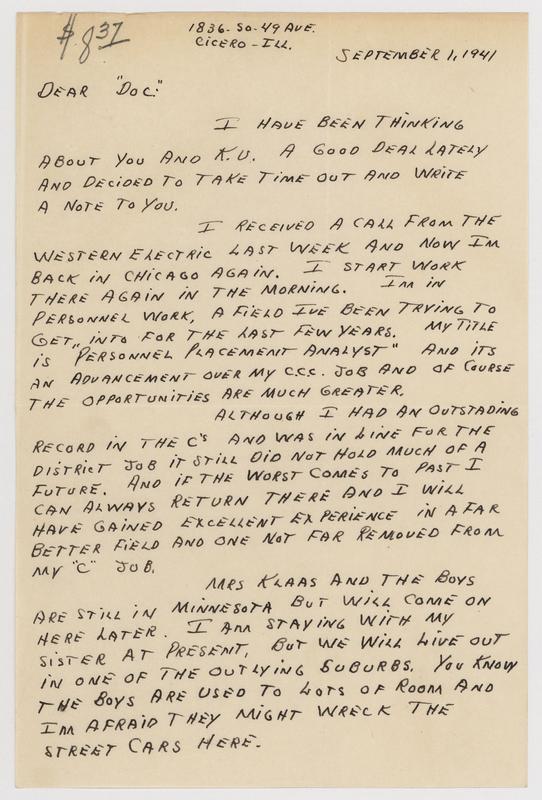 $.837
1836-So-49 AVE.
CICERO-ILL.
SEPTEMBER 1, 1941
DEAR "DOC:"
I HAVE BEEN THINKING
ABOUT YOU AND K.U. A GOOD DEAL LATELY
AND DECIDED TO TAKE TIME OUT AND WRITE
A NOTE TO YOU.
I RECEIVED A CALL FROM THE
WESTERN ELECTRIC LAST WEEK AND NOW IM
BACK IN CHICAGO AGAIN. I START WORK
THERE AGAIN IN THE MORNING. IM IN
PERSONNEL WORK, A FIELD IVE BEEN TRYING TO
GET INTO FOR THE LAST FEW YEARS. MY TITLE
IS "PERSONNEL PLACEMENT ANALYST" AND ITS
AN ADVANCEMENT OVER MY CCC. JOB AND OF COURSE
THE OPPORTUNITIES ARE MUCH GREATER.
ALTHOUGH I HAD AN OUTSTADING
RECORD IN THE C'S AND WAS IN LINE FOR THE
DISTRICT JOB IT STILL DID NOT HOLD MUCH OF A
FUTURE. AND IF THE WORST COMES TO PAST I
CAN ALWAYS RETURN THERE AND I WILL
HAVE GAINED EXCELLENT EXPERIENCE IN A FAR
BETTER FIELD AND ONE NOT FAR REMOVED FROM
MY "C" JOB.
MRS KLAAS AND THE BOYS
ARE STILL IN MINNESOTA BUT WILL COME ON
HERE LATER. I AM STAYING WITH MY
SISTER AT PRESENT, BUT WE WILL LIVE OUT
IN ONE OF THE OUTLYING SUBURBS. YOU KNOW
THE BOYS ARE USED TO LOTS OF ROOM AND
IM AFRAID THEY MIGHT WRECK THE
STREET CARS HERE.